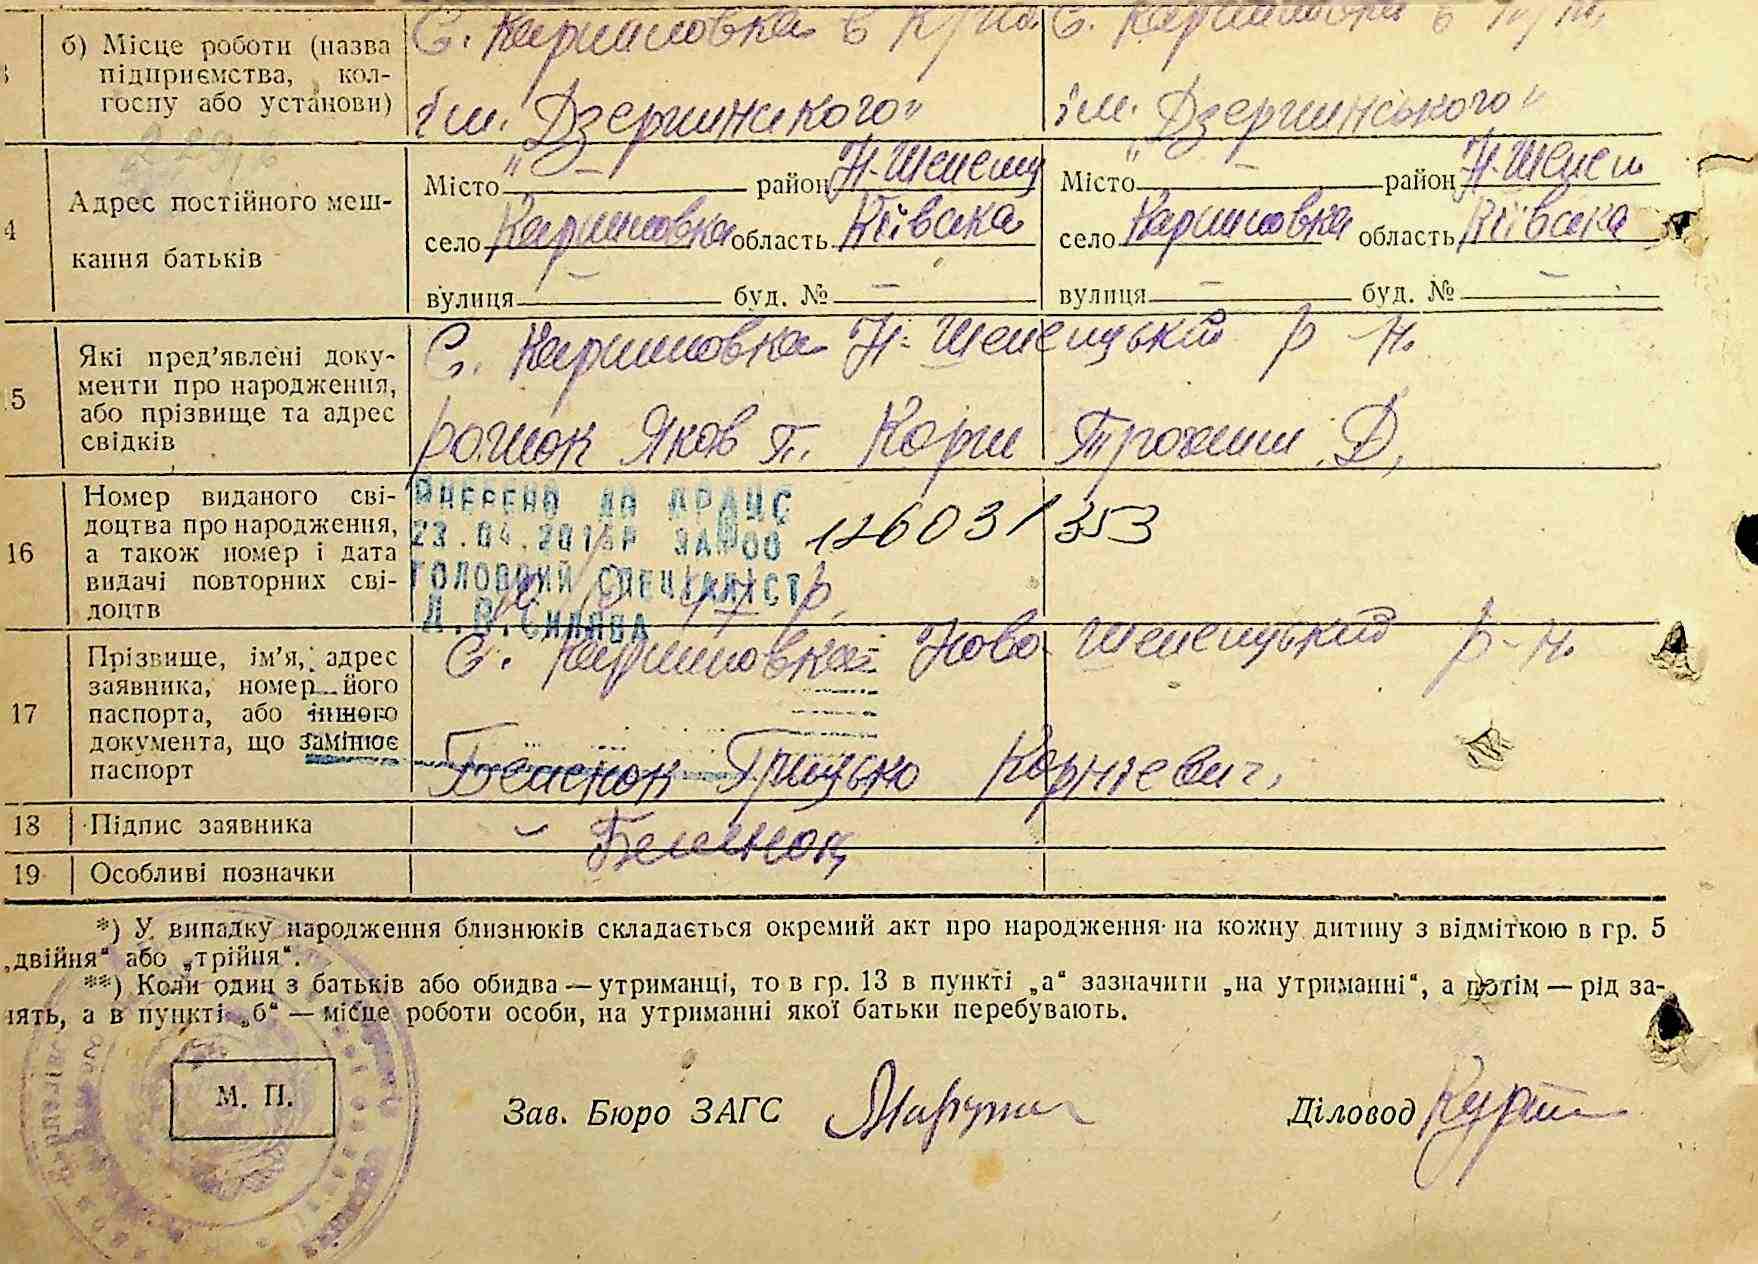 б) Місце роботи (назва
підприємства, кол-
госпу або установи)
с. Каришовка в с. Каришовка в
ім. „Дзержинського“ ім. „Дзержинського“
4
Адрес постійного меш-
кання батьків
Місто — район Н-Шепели Місто — район Н-Шепел
село Каришовка область Київска село Каришовка область Київска
вулиця — буд. № — вулиця — буд. № —
15
Які пред'явлені доку-
менти про народження,
або прізвище та адрес
свідків
С. Каришовка Н-Шепелицький р-н.
Яков П. Корж Трохим Д.
16
Номер виданого сві-
доцтва про народження,
а також номер і дата
видачі повторних сві-
доцтв
ВНЕСЕНО ДО ДРАЦС
23.04.201 Р ЗА №00 126031353
ГОЛОВНИЙ СПЕЦІАЛІСТ
Д.В.
17
Прізвище, ім'я, адрес
заявника, номер його
паспорта, або іншого
документа, що замінює
паспорт
С. Каришовка Ново Шепелицький р-н.
Грицько Корнієвич,
18 Підпис заявника
19 Особливі позначки
*) У випадку народження близнюків складається окремий акт про народження на кожну дитину з відміткою в гр. 5
„двійня“ або „трійня“.
**) Коли один з батьків або обидва — утриманці, то в гр. 13 в пункті „а“ зазначити „на утриманні“, а потім — рід за-
нять, а в пункті „б“ — місце роботи особи, на утриманні якої батьки перебувають.
М. П.
Зав. Бюро ЗАГС
Діловод